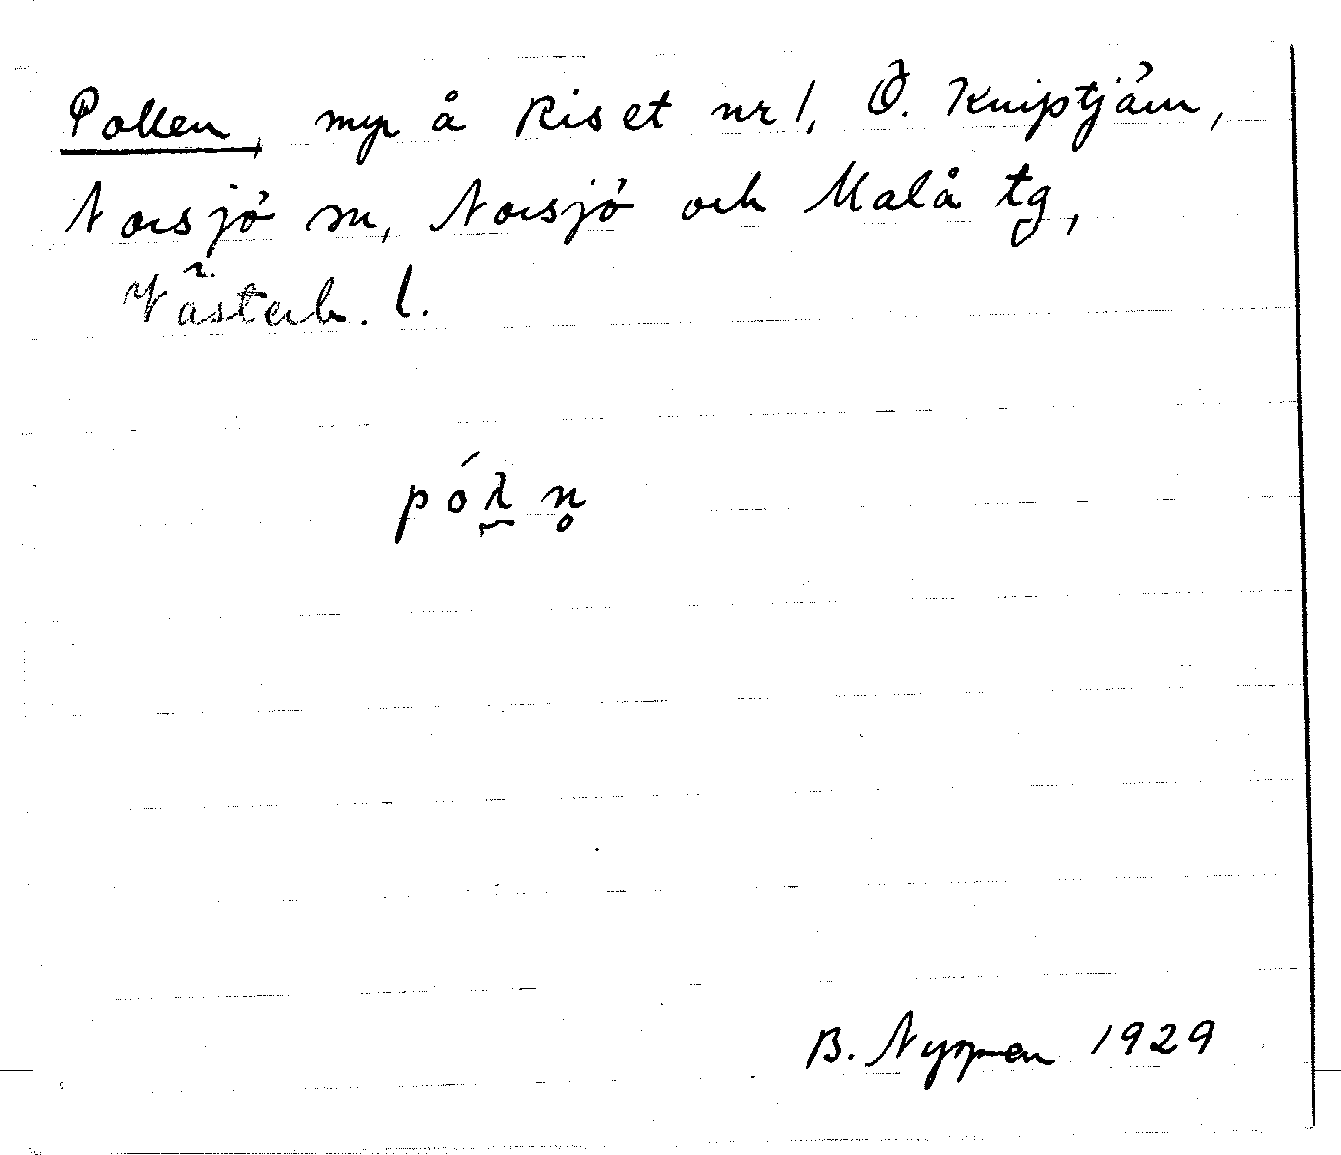 Pollen, myr å Riset nr 1, Ö. Kniptjärn,
Norsjö sn, Norsjö och Malå tg,
Västerb. l.
pól n̥
B. Nyman 1929